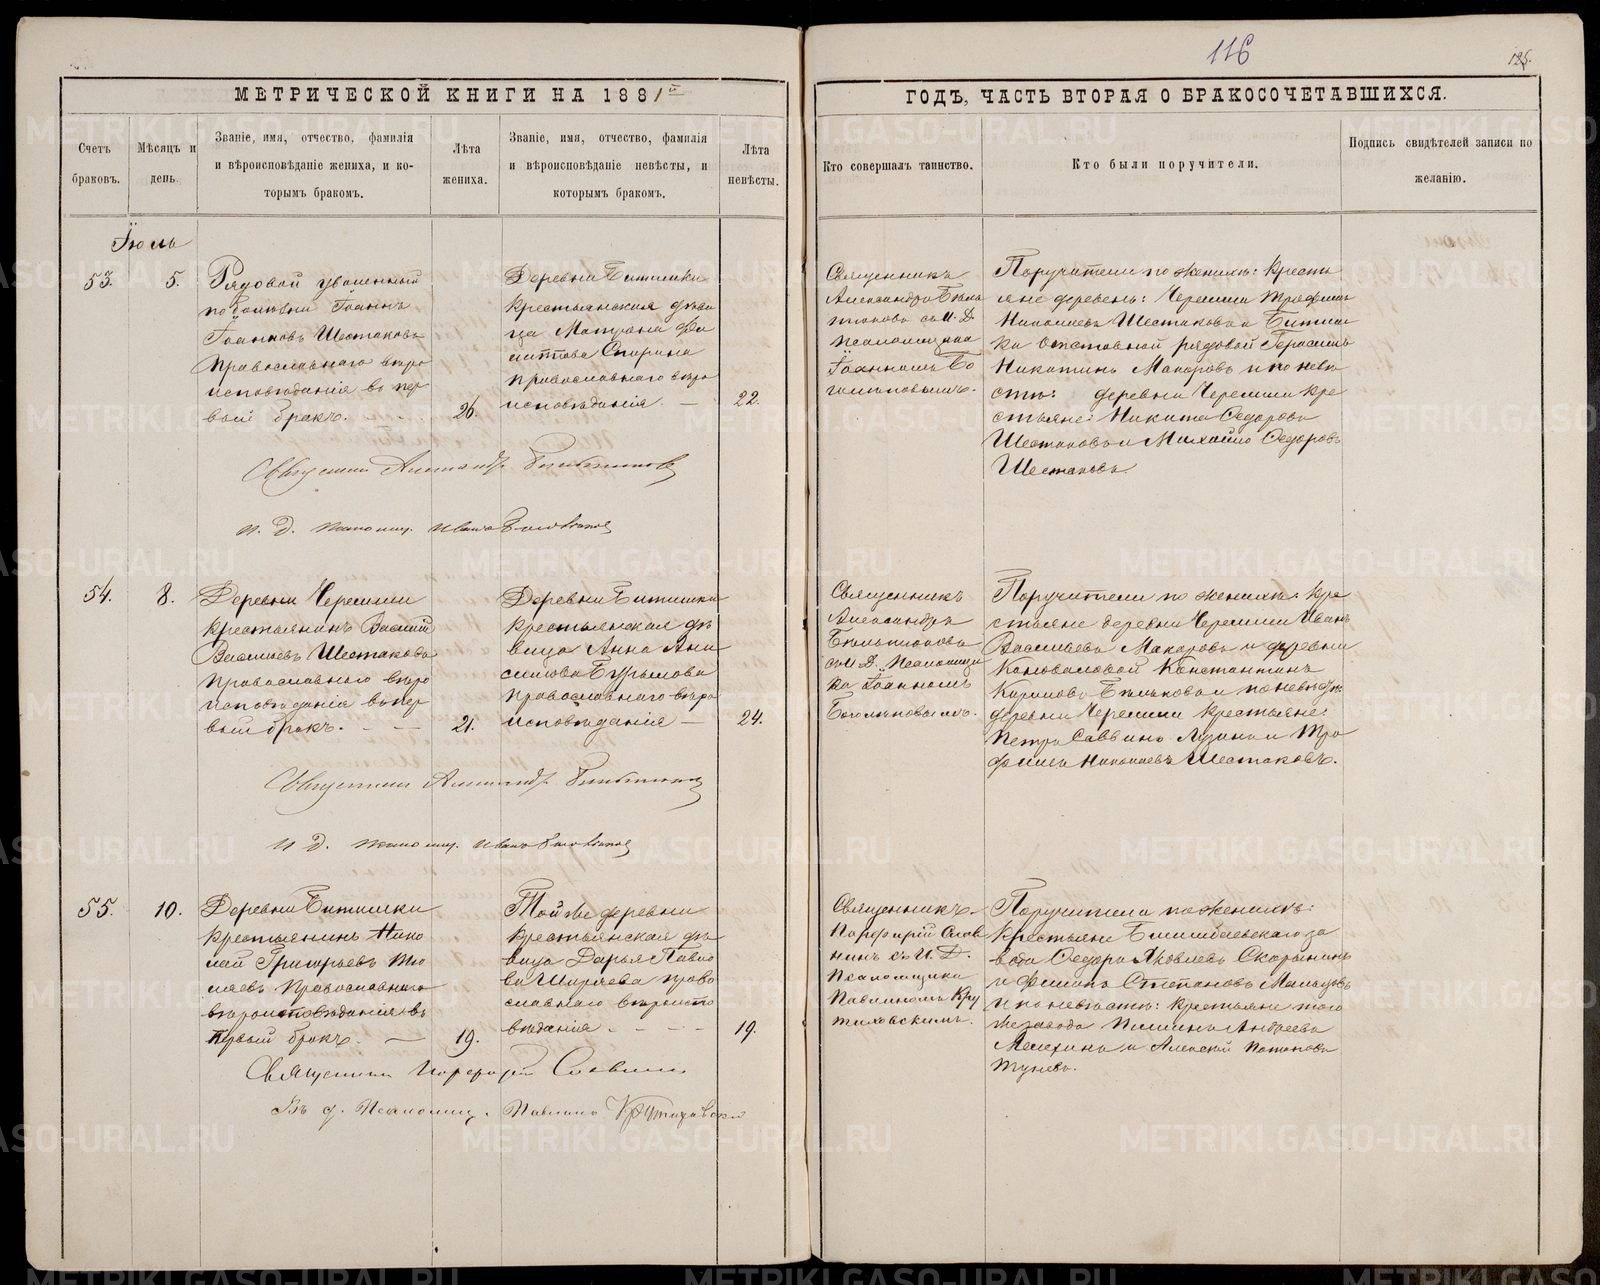 116
125.
МЕТРИЧЕСКОЙ КНИГИ НА 1881й
ГОДЪ, ЧАСТЬ ВТОРАЯ О БРАКОСОЧЕТАВШИХСЯ.
Счетъ
браковъ.
Мѣсяцъ и
день.
Званіе, имя, отчество, фамилія
и вѣроисповѣданіе жениха, и ко-
торымъ бракомъ.
Лѣта
жениха.
Званіе, имя, отчество, фамилія
и вѣроисповѣданіе невѣсты, и
которымъ бракомъ.
Лѣта
невѣсты.
Кто совершалъ таинство.
Кто были поручители.
Подпись свидѣтелей записи по
желанію.
Іюль
53.
5.
Рядовой уволенный
по болѣзни Іоаннъ
Іоанновъ Шестаковъ
православнаго вѣро
исповѣданія въ пер
вый бракъ.
26.
Деревни
крестьянская дѣви
ца Матрона Фи
Спирина
православнаго вѣро
исповѣданія —
22.
Священникъ
Александръ
съ И. Д.
псаломщика
Іоанномъ Бо
Поручители по женихѣ: кресть
яне деревень: Черемши Трофимъ
Николаевъ Шестаковъ и
ка отставной рядовой Герасимъ
Никитинъ Макаровъ и по невѣ
стѣ: деревни Черемши кре
стьяне: Никита Ѳедоровъ
Шестаковъ и Михайло Ѳедоровъ
Шестаковъ
Священникъ Александръ
И. Д. псаломщ. Иванъ
54.
8.
Деревни Черемши
крестьянинъ Василій
Васильевъ Шестаковъ
православнаго вѣро
исповѣданія въ пер
вый бракъ. — —
21.
Деревни
крестьянская дѣ
вица Анна Они
симова
православнаго вѣро
исповѣданія —
24.
Священникъ
Александръ
съ И. Д. псаломщи
ка Іоанномъ
Поручители по женихѣ: кре
стьяне деревни Черемши Иванъ
Васильевъ Макаровъ и деревни
Коноваловой Константинъ
Бѣльковъ и по невѣстѣ
деревни Черемши крестьяне:
Петръ Саввинъ Лузинъ и Тро
фимъ Николаевъ Шестаковъ.
Священникъ Александръ
И Д. псаломщ. Иванъ
55.
10.
Деревни
крестьянинъ Нико
лай Григорьевъ
православнаго
вѣроисповѣданія въ
первый бракъ. —
19.
Той же деревни
крестьянская дѣ
вица Дарья Павло
ва Ширяева право
славнаго вѣроиспо
вѣданія — — —
19.
Священникъ
Порфирій Слав
нинъ съ И. Д.
псаломщика
Павлиномъ Кру
тиховскимъ.
Поручители по женихѣ:
крестьяне Билимбаевскаго за
вода Ѳедоръ Яковлевъ Скорынинъ
и Филипъ Степановъ Мальцовъ
и по невѣстѣ: крестьяне того
же завода Пиминъ Андреевъ
Мелехинъ и Алексѣй Потаповъ
Священникъ Порфирій Славнинъ
Въ д. псаломщ. Павлинъ Крутиховскій
METRIKI.GASO-URAL.RU